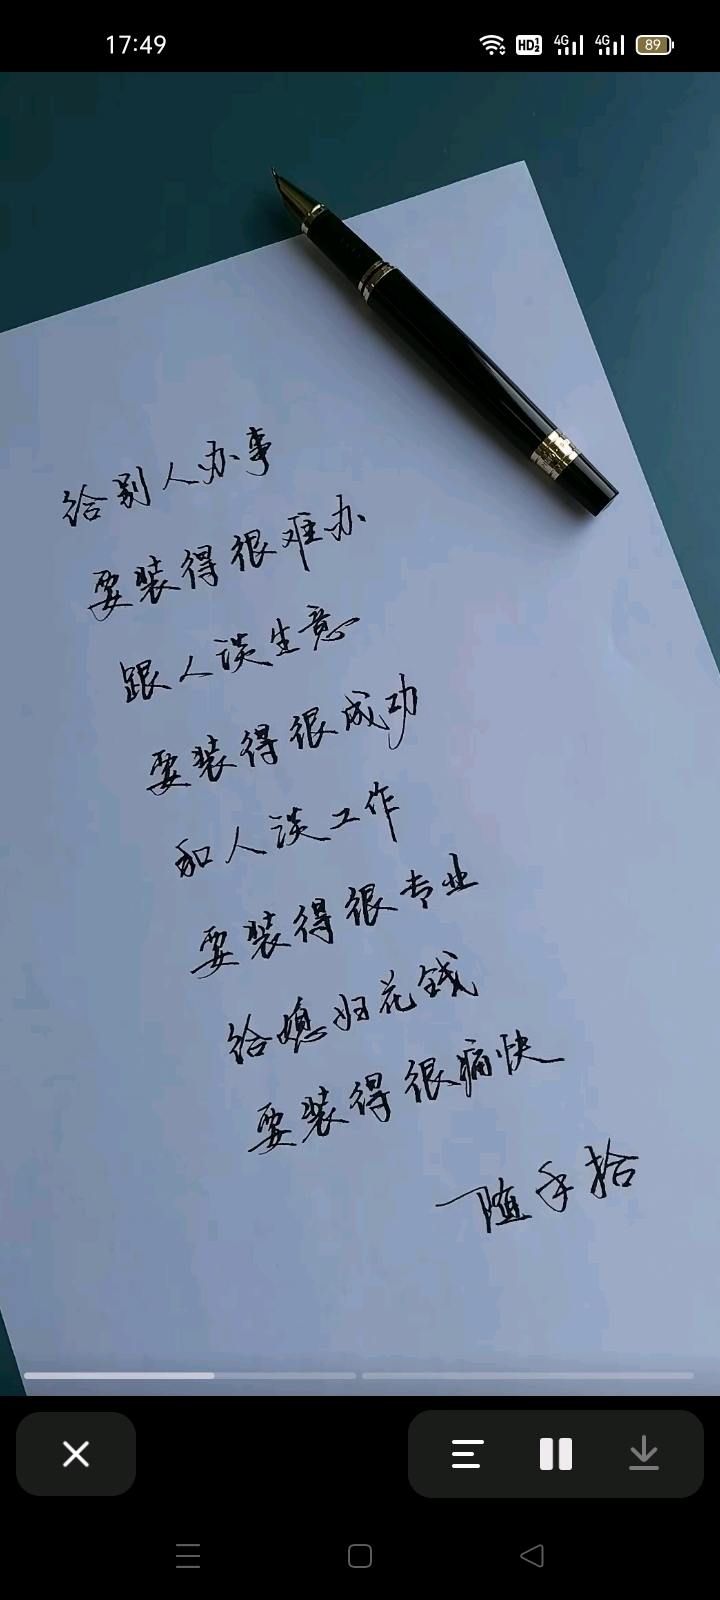 17:49
HD 1 2 4G 4G 89
给别人办事
要装得很难办
跟人谈生意
要装得很成功
和人谈工作
要装得很专业
给媳妇花钱
要装得很痛快
一随手拾